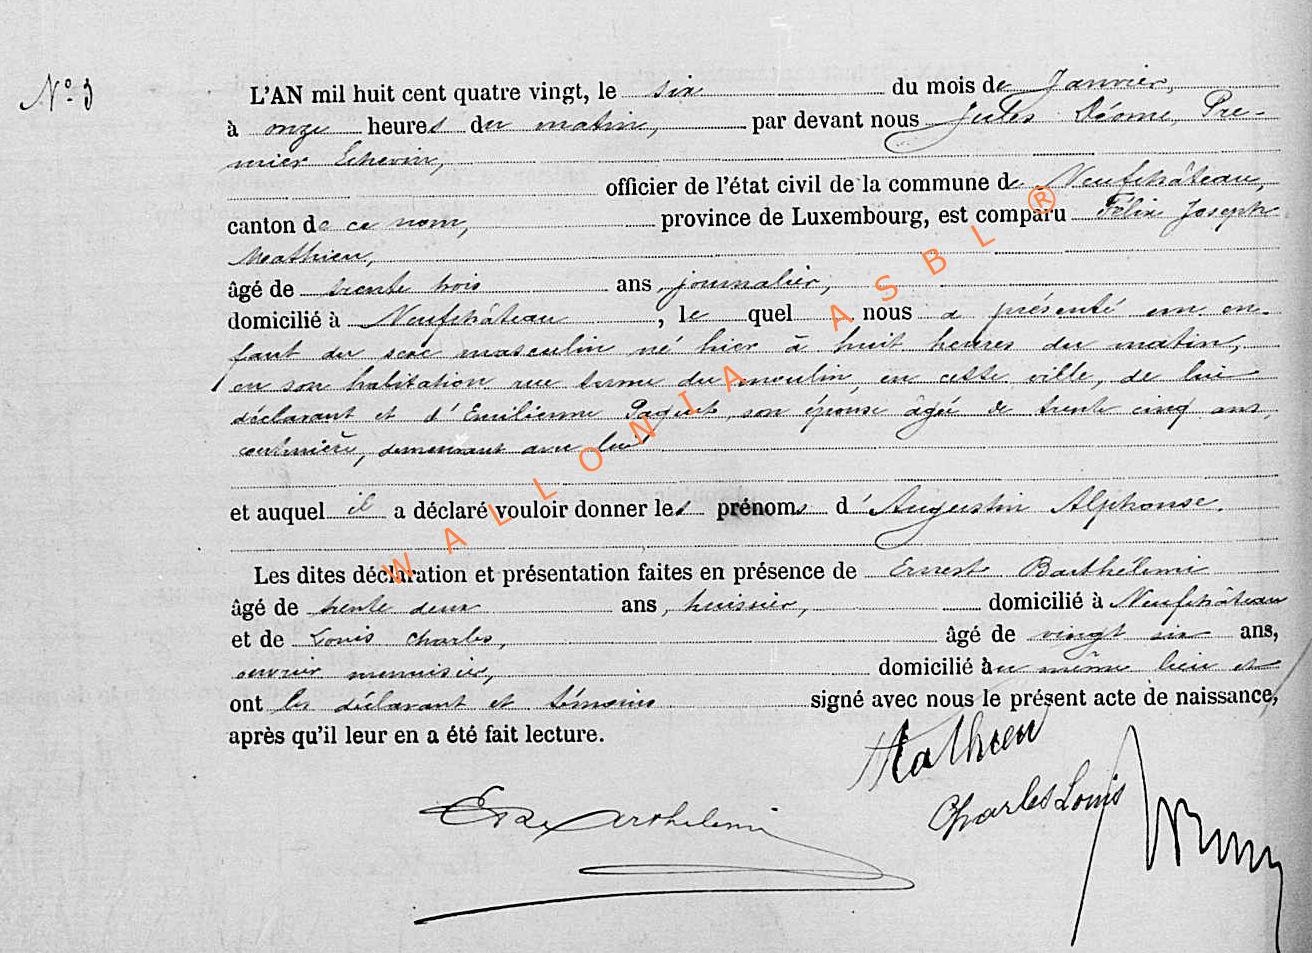 N° 3
L'AN mil huit cent quatre vingt, le six du mois de Janvier,
à onze heures du matin, par devant nous Jules Déome, Pre-
mier Echevin,
officier de l'état civil de la commune de Neufchâteau,
canton de ce nom, province de Luxembourg, est comparu Félix Joseph
Mathieu,
âgé de trente trois ans, journalier,
domicilié à Neufchâteau, le quel nous a présenté un en-
fant du sexe masculin né hier à huit heures du matin,
en son habitation rue terme du moulin, en cette ville, de lui
déclarant et d'Emilienne Paquet, son épouse âgée de trente cinq ans,
couturière, demeurant avec lui
et auquel il a déclaré vouloir donner les prénoms d'Augustin Alphonse.
Les dites déclaration et présentation faites en présence de Ernest Barthélemi
âgé de trente deux ans, huissier, domicilié à Neufchâteau
et de Louis Charles, âgé de vingt six ans,
ouvrier menuisier, domicilié au même lieu et
ont les déclarant et témoins signé avec nous le présent acte de naissance,
après qu'il leur en a été fait lecture.
Mathieu
Charles Louis
Barthelemi
WALLONIA ASBL ®